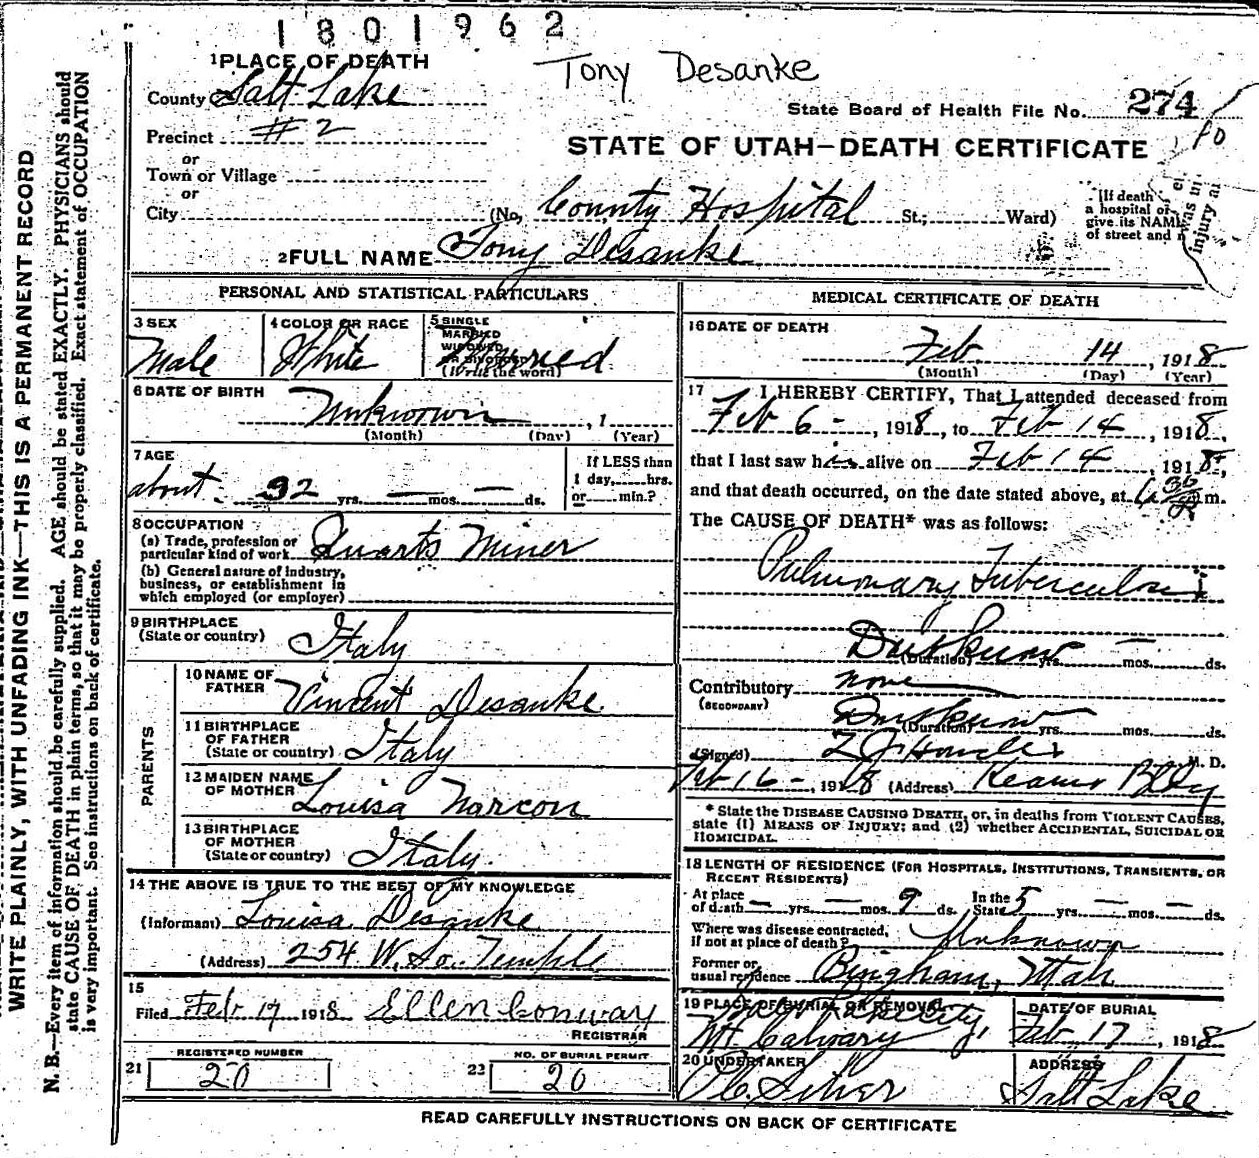 1801962
Tony Desanke
1 PLACE OF DEATH
County Salt Lake
State Board of Health File No. 274
Precinct #2
10
STATE OF UTAH—DEATH CERTIFICATE
or
Town or Village
or
City (No. County Hospital St.; Ward)
[If death
a hospital or
give its NAME
of street and
was in
injury a
2 FULL NAME Tony Desanke
PERSONAL AND STATISTICAL PARTICULARS
3 SEX Male
4 COLOR OR RACE White
5 SINGLE
MARRIED
WIDOWED
OR DIVORCED
(Write the word)
Married
6 DATE OF BIRTH
Unknown , 1
(Month) (Day) (Year)
7 AGE
about 32 yrs. — mos. — ds.
If LESS than
1 day, hrs.
or min.?
8 OCCUPATION
(a) Trade, profession or
particular kind of work Quarts Miner
(b) General nature of industry,
business, or establishment in
which employed (or employer)
9 BIRTHPLACE
(State or country) Italy
PARENTS
10 NAME OF
FATHER Vincent Desanke
11 BIRTHPLACE
OF FATHER
(State or country) Italy
12 MAIDEN NAME
OF MOTHER Louisa Narcon
13 BIRTHPLACE
OF MOTHER
(State or country) Italy.
14 THE ABOVE IS TRUE TO THE BEST OF MY KNOWLEDGE
(Informant) Louisa Desanke
(Address) 254 W. So. Temple
15
Filed Feb 17 1918 Ellen Conway
REGISTRAR
21 REGISTERED NUMBER
20
22 NO. OF BURIAL PERMIT
20
MEDICAL CERTIFICATE OF DEATH
16 DATE OF DEATH
Feb. 14, 1918
(Month) (Day) (Year)
17 I HEREBY CERTIFY, That I attended deceased from
Feb 6 -, 1918, to Feb 14, 1918,
that I last saw his alive on Feb 14, 1918,
and that death occurred, on the date stated above, at m.
The CAUSE OF DEATH* was as follows:
Pulmonary Tuberculosis
(Duration) yrs. — mos. ds.
Contributory none
(SECONDARY)
(Duration) yrs. mos. ds.
(Signed) M. D.
Feb 16 -, 1918 (Address) Kearns Bldg
* State the DISEASE CAUSING DEATH, or, in deaths from VIOLENT CAUSES,
state (1) MEANS OF INJURY; and (2) whether ACCIDENTAL, SUICIDAL OR
HOMICIDAL.
18 LENGTH OF RESIDENCE (FOR HOSPITALS, INSTITUTIONS, TRANSIENTS, OR
RECENT RESIDENTS)
At place
of death — yrs. — mos. 9 ds. In the
State 5 yrs. — mos. — ds.
Where was disease contracted,
if not at place of death? Unknown
Former or
usual residence Bingham, Utah
19 PLACE OF BURIAL OR REMOVAL
City,
Mt. Calvary
DATE OF BURIAL
Feb 17, 1918
20 UNDERTAKER
ADDRESS
Salt Lake
READ CAREFULLY INSTRUCTIONS ON BACK OF CERTIFICATE
WRITE PLAINLY, WITH UNFADING INK—THIS IS A PERMANENT RECORD
N. B.—Every item of information should be carefully supplied. AGE should be stated EXACTLY. PHYSICIANS should
state CAUSE OF DEATH in plain terms, so that it may be properly classified. Exact statement of OCCUPATION
is very important. See instructions on back of certificate.